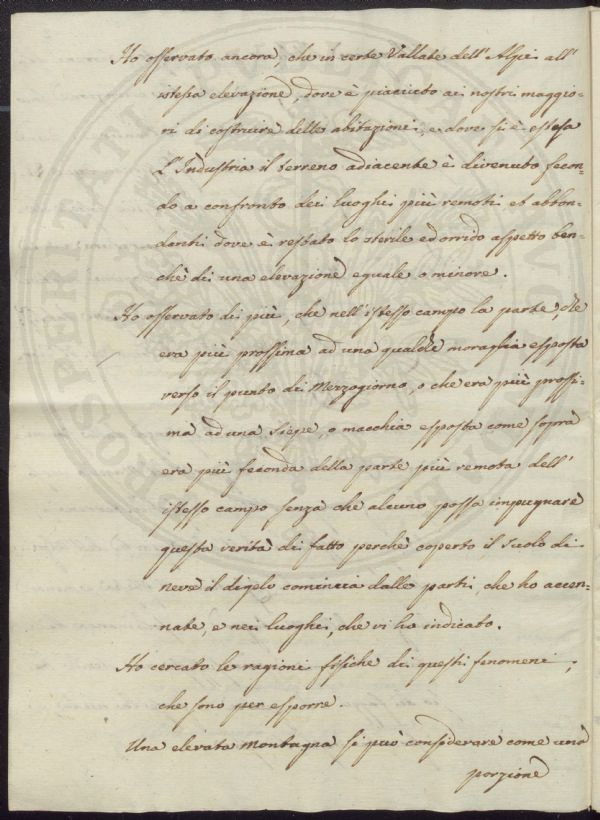 Ho osservato ancora, che in certe Vallate dell'Alpi all'
istessa elevazione, dove è piaciuto ai nostri maggio-
ri di costruire delle abitazioni, e dove si è estesa
L'Industria il terreno adiacente è divenuto fecon-
do a confronto dei luoghi più remoti et abbon-
danti dove è restato lo sterile ed orrido aspetto ben-
chè di una elevazione eguale o minore.
Ho osservato di più, che nell'istesso campo la parte, che
era più prossima ad una qualche moraglia esposta
verso il punto di Mezzogiorno, o che era più prossi-
ma ad una Siepe, o macchia esposta come sopra
era più feconda della parte più remota dell'
istesso campo senza che alcuno possa impugnare
questa verità di fatto perchè coperto il suolo di
neve il digelo comincia dalle parti, che ho accen-
nate, e nei luoghi, che vi ho indicato.
Ho cercato le ragioni fisiche di questi fenomeni,
che sono per esporre.
Una elevata Montagna si può considerare come una
porzione